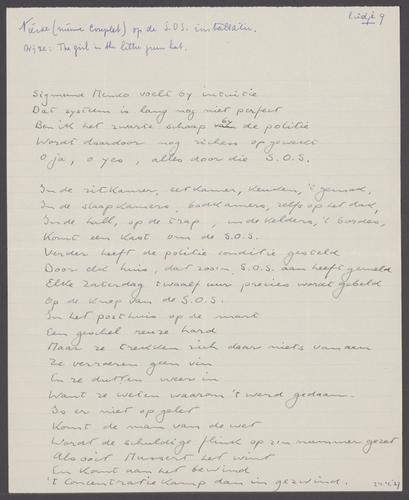 liedje 9
Nieuw (nieuwe couplet) op de S.O.S. installatie.
Wijze: The girl in the little green hat.
Sigmund Menko voelt by intuitie
Dat systeem is lang nog niet perfect
Ben ik het zwarte schaap by de politie
Wordt daardoor nog op gewekt
O ja, o yes, alles door die S.O.S.
In de zitkamer, eetkamer, keuken, 't gemak,
In de slaapkamers, badkamers, zelfs op het dak,
In de hall, op de trap, in de kelders, 't bordes,
Komt een kast om de S.O.S.
Verder heeft de politie conditie gesteld
Door elk huis, dat zoo'n S.O.S. aan heeft gemeld
Elke Zaterdag twaalf uur precies wordt gebeld
Op de knop van de S.O.S.
In het posthuis op de markt
Een geschel reuze hard
Maar ze trekken zich daar niets van aan
Ze verroeren geen vin
En ze dutten weer in
Want ze weten waarom 't werd gedaan.
Is er niet op gelet
Komt de man van de wet
Wordt de schuldige flink op zijn nummer gezet
Als ooit Mussert het wint
En komt aan het bewind
't Concentratie kamp dan in gezwind.